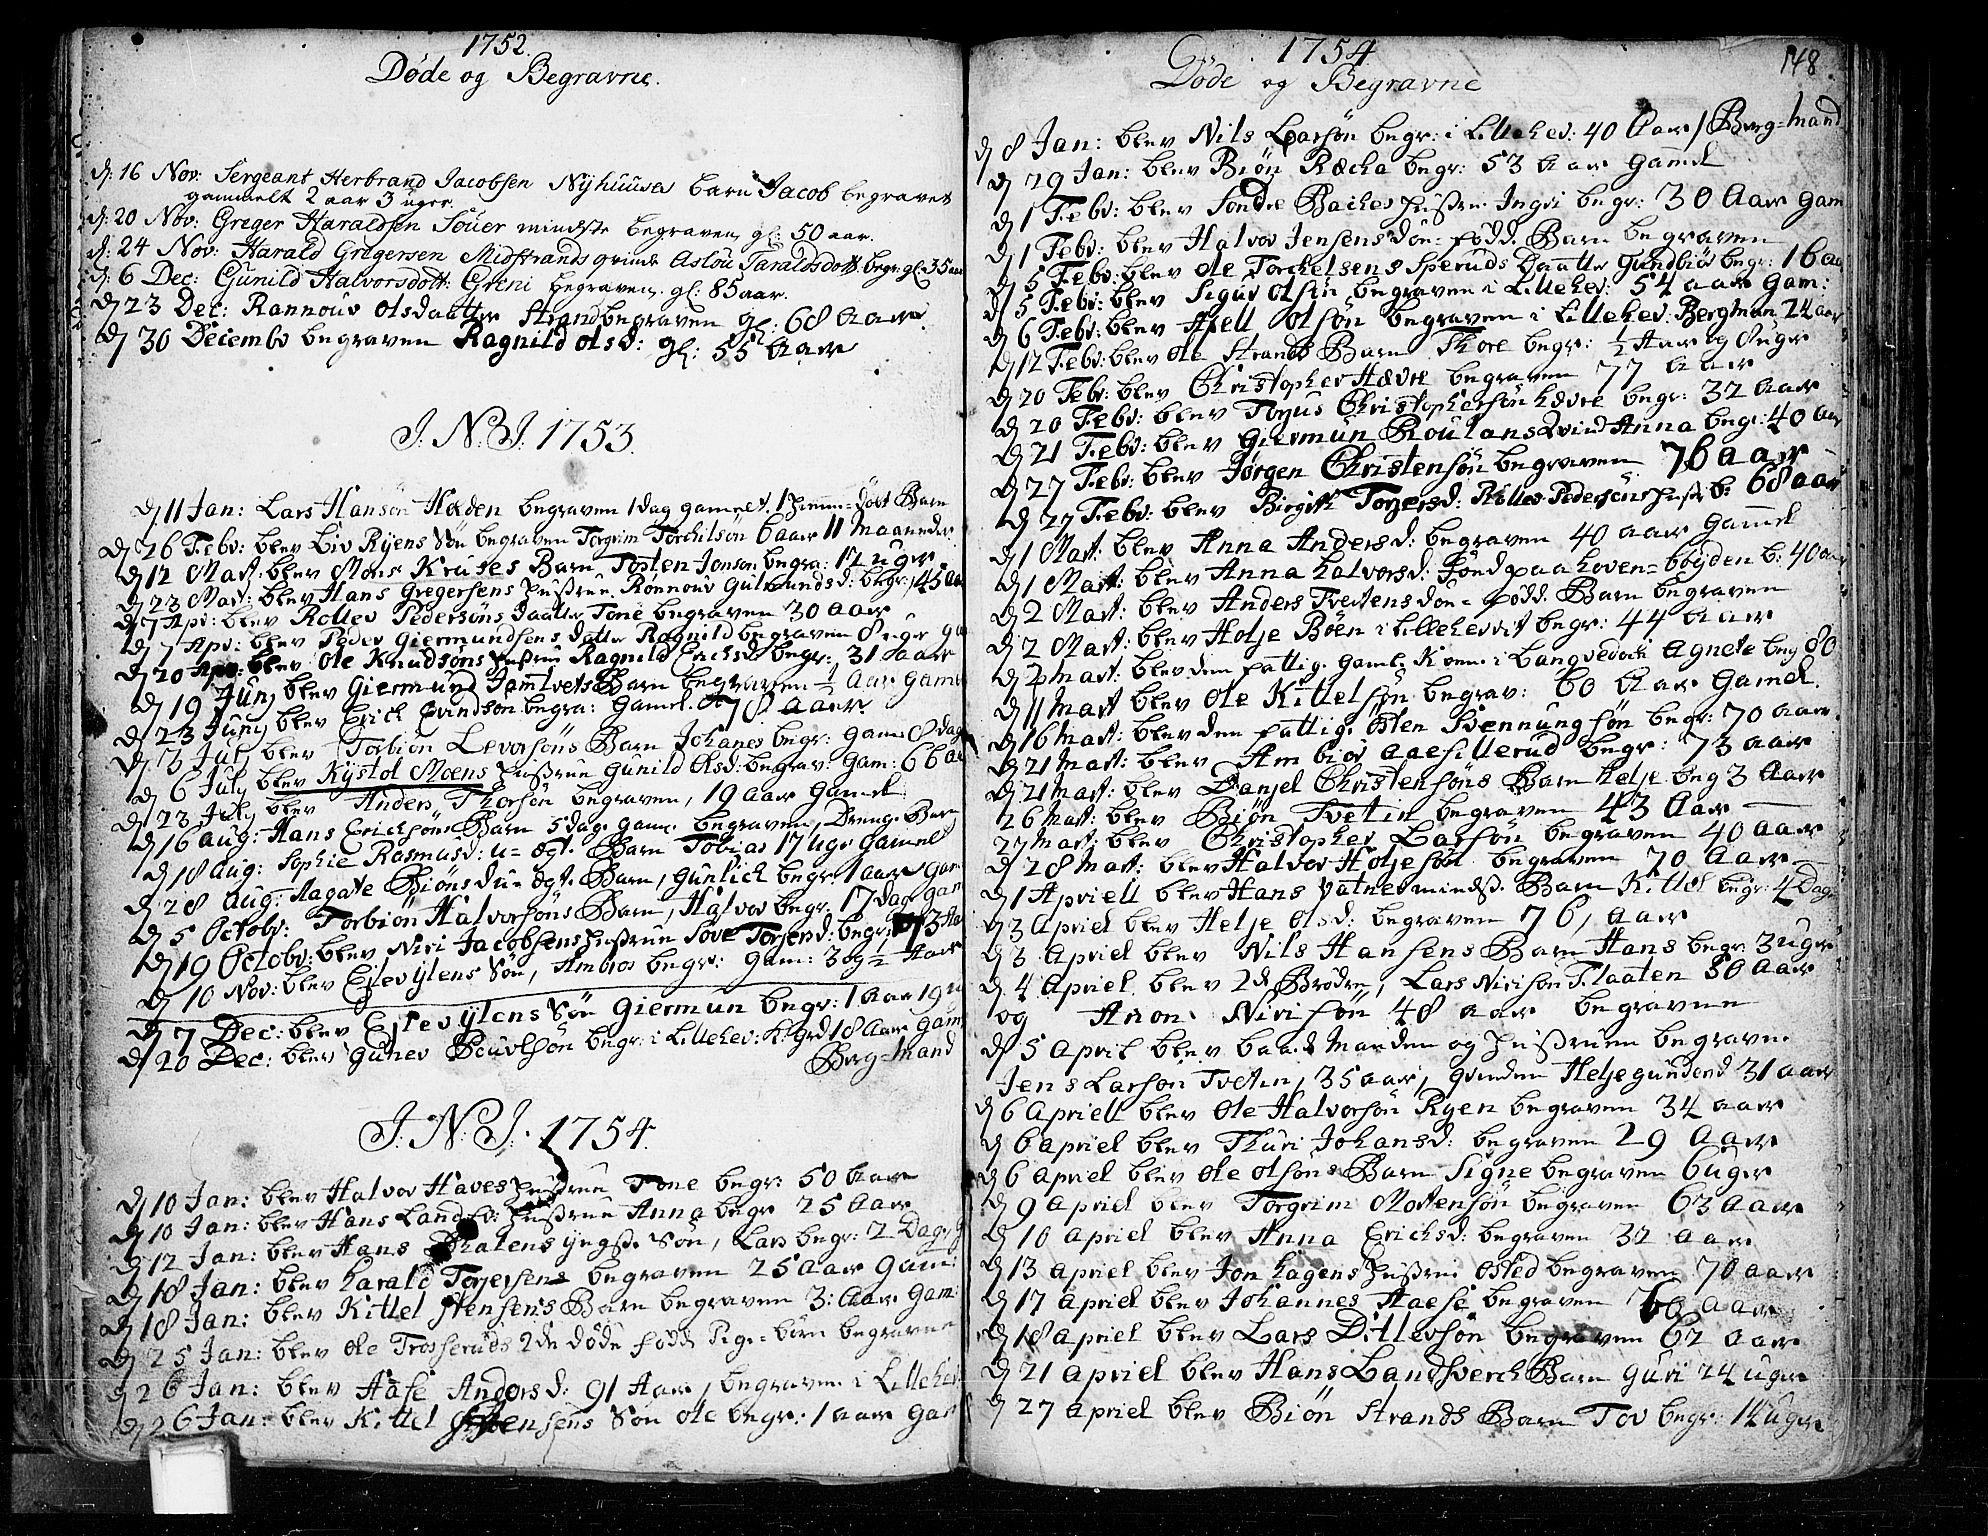 1752.
Døde og Begravne.
d: 16 Nov: Sergeant Herbrand Jacobsen Nyhuuses barn Jacob begravet
gammelt 2 aar 3 uger.
d: 20 Nov: Greger Haraldsen Souer mindste begraven gl: 50 aar.
d: 24 Nov: Harald Gregersen Midstrands qvinde Aslou Taraldsdott: begr: gl: 35 aar
d: 6 Dec: Gunild Halvorsdott: Greni begraven. gl: 85 aar.
d 23 Dec: Rannouv Olsdaatter Strand begraven gl: 68 Aar.
d 30 Decembr begraven Ragnild Olsd: gl: 55 Aar
J: N: J: 1753.
d 11 Jan: Lars Hansøn Haden begraven 1 dag gamelt. 1 Hiemme-døbt Barn
d 26 Febr: blev Liv Ryens Søn begraven Torgrim Torchilsøn 6 aar 11 Maaneder
d 12 Mart: blev Mons Kruses Barn Tosten Jonson begra: 12 uger
d 23 Mart: blev Hans Gregersens Hustrue Rønnouv Gulmundsd: begr: 45 aar
d 7 Apr: blev Rollev Pedersøns Daatter Tone begraven 30 aar
d 7 Apr: blev Peder Giermundsens Datter Ragnild begraven 8 uger ga
d 20 Apr: blev Ole Knudsøns Hustrue Ragnild Erichsd begr: 31 aar
d 19 Juny blev Giermund Jamtvets Barn begraven ½ Aar gamel
d 23 Juny blev Erick Evindson begra: Gamel. 78 Aaer.
d 3 July blev Torbiøn Levorsøns Barn Johanes begr: gam: 8 dag
d 6 July blev Kystol Moens Hustrue Gunild Olsd: begrav: Gam: 66 aar
d 23 July blev Anders Thorsøn begraven, 19 aar Gamel
d 16 Aug: Hans Erichsøns Barn 5 dage gam: begraven, Drenge Barn
d 18 Aug: Sophie Rasmusd: u=ægt. Barn Tobias 17 uger Gamel
d 28 Aug: Aagate Biønsd u=ægt. Barn, Gunlich begr: 1 aar gam
d 5 Octobr: Torbiøn Halvorsøns Barn, Halvor begr. 17 dage gam
d 19 Octobr: blev Niri Jacobsens Hustrue Sove Torjersd: begr: 73 Aar
d 10 Nov: blev Ejlevylens Søn, Ambros begr: gam: 3 og ½ Aar
d 7 Dec: blev Ejlevylens Søn Giermun begr: 1 Aar 19 u
d 20 Dec: blev Gunev Pouvlsøn begr: i Lillehev: K: Grd 18 Aar Gam
Berg-Mand
J: N: J: 1754.
d 10 Jan: blev Halvor Haves Hustrue Tone begr: 50 Aar
d 10 Jan: blev Hans Landsv: Hustrue Anna begr 25 Aar
d 12 Jan: blev Hans yngst. Søn, Lars begr: 2 Dage g
d 18 Jan: blev Harald Torjersens begraven 25 Aar Gam:
d 18 Jan: blev Kittel Stensens Barn begraven 3: Aar Gam:
d 25 Jan: blev Ole Trosseruds 2de døde fødde Pige-børn begravne
d 26 Jan: blev Aase Andersd: 91 Aar, begraven i Lillehev
d 26 Jan: blev Kittel Stensens Søn Ole begr: 1 aar gam
1754
148.
Døde og Begravne
d 8 Jan: blev Nils Larsøn begr: i Lillehev: 40 Aar / Berg-Mand
d 29 Jan: blev Biøn Ræcha begr: 53 Aar gamel
d 1 Febr: blev Sondre Baches Hustrue Ingri begr: 30 Aar Gam
d 1 Febr: blev Halvor Jensens døe=fødd. Barn begraven
d 5 Febr: blev Ole Torchelsens Speruds Daatter Gundbiør begr: 16 aar
d 5 Febr: blev Sigur Olsen begraven i Lillehev: 54 aar Gam:
d 6 Febr: blev Axell Olsøn begraven i Lillehev: Bergman 24 aar
d 12 Febr: blev Ole Strands Barn Thore begr: ½ Aar og 8 uger
d 20 Febr: blev Christopher Hævre begraven 77 Aar
d 20 Febr: blev Torjus Christophersøn Hævre begr: 32 Aar
d 21 Febr: blev Giermun Roulans Qvind Anna begr: 40 aar
d 27 Febr: blev Jørgen Christensøn begraven 76 Aar
d 27 Febr: blev Birgith Torjersd: Rollev Pedersøns Hustr b: 68 aar
d 1 Mart: blev Anna Andersd: begraven 40 aar Gamel
d 1 Mart: blev Anna Halvorsd: Søndpaa Hoven=bøygden b: 40 aar
d 2 Mart: blev Anders Tvetens døe=fødd. Barn begraven
d 2 Mart: blev Holje Bøen i Lillehervit begr: 44 Aar
d 2 Mart: blev den fattig. Gaml. Kone i Langvedocti Agnete beg 80
d 11 Mart blev Ole Kittelsøn begrav: 60 Aar Gamel.
d 16 Mart: blev den fattig. Østen Svennungsøn begr: 70 aar.
d 21 Mart: blev Ambiør Aasillerud begr: 73 aar
d 21 Mart: blev Danjel Christensøns Barn Helje beg 3 Aar
26 Mart: blev Biøn Tvetin begraven 43 Aar
27 Mart: blev Christopher Larsøn begraven 40 aar
d 28 Mart: blev Halvor Holjesøn begraven 70 Aar
d 1 Apriell blev Hans Vatnes mindst. Barn Kittel begr: 4 Dage
d 3 Apriel blev Helje Olsd: begraven 76, Aar
d 3 Apriel blev Nils Hansens Barn Hans begr: 3 uger
d 4 Apriel blev 2de Brødre, Lars Nirison Flaaten 50 aar
og Anon Nirisøn 48 aar begravene
d 5 April blev baade Manden og Hustruen begraven
Jens Larsøn Tvetin, 35 aar, Qvinden Helje Gundersd 31 aar
d 6 Apriell blev Ole Halvorsøn Ryen begraven 34 aar
d 6 Apriel blev Thuri Johansd: begraven 29 Aar
d 6 Apriel blev Ole Olsøns Barn Signe begraven 6 uger
d 9 Apriel blev Torgrim Mortensøn begraven 63 Aar
d 10 Apriel blev Anna Erichsd: begraven 32 aar
d 13 Apriel blev Jon Hagens Hustrue Osled begraven 70 aar
d 17 Apriel blev Johannes Aaese begraven aar
d 18 Apriel blev Lars Ditlevsøn begraven 62 aar
d 21 Apriel blev Hans Landsverch Barn Guri 24 uger
d 27 Apriel blev Biøn Strands Barn Tov begr: 12 uger